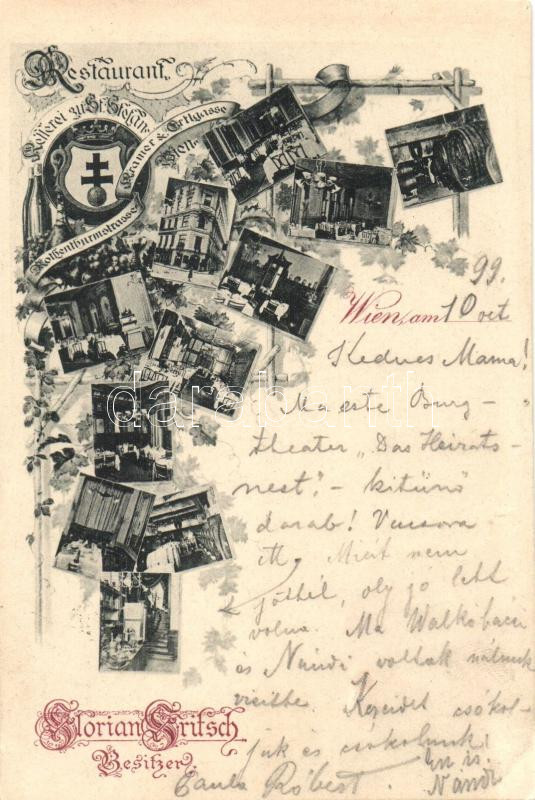 Restaurant
Kellerei zu St. Stefan
Kramer & Ertlgasse
Wien
Rothenthurmstrasse
99.
Wien, am 10 oct
Kedves Mama!
Ma este Burg-
theater „Das Heirats-
nest". - kitünő
darab! Vacsora
itt. Miért nem
jöttél, oly jó lett
volna. Ma Walkóbácsi
és Nándi voltak nálunk
vizitbe. Kezeidet csókol-
juk és csókolunk
én is.
Paula Róbert. Nándi
Florian Fritsch
Besitzer.
darabanth